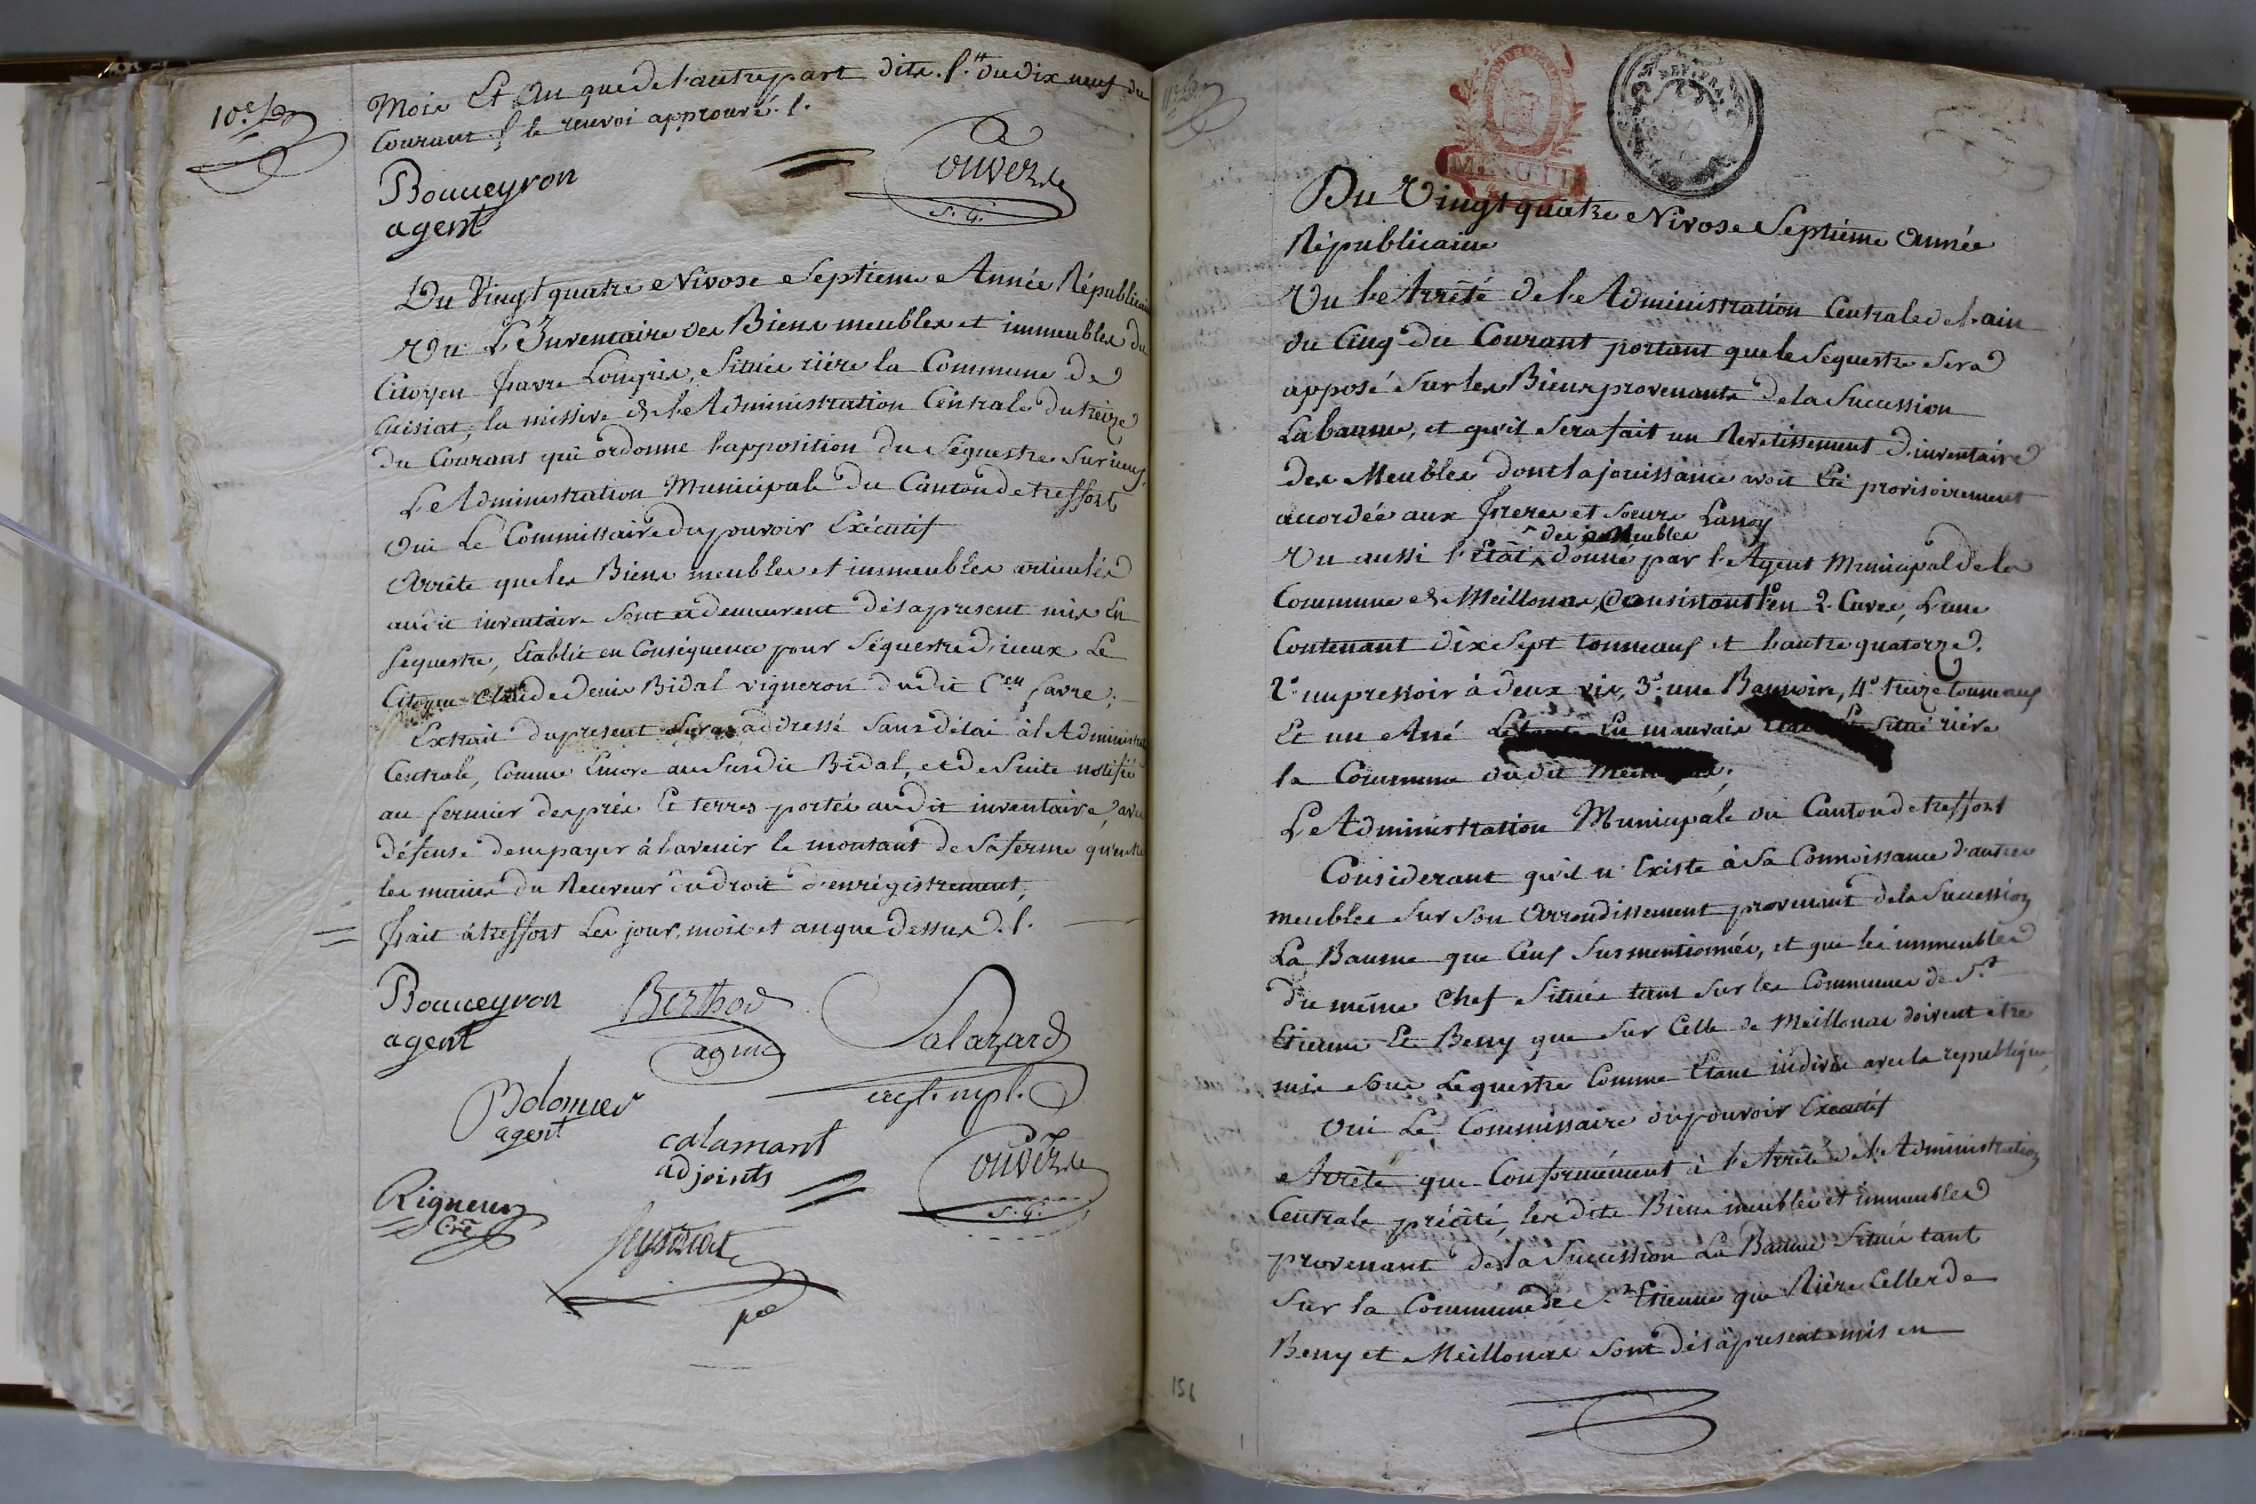 10.e
Mois Et An que de l'autre part dite. f. du dix neuf du
Courant. f. le renvoi approuvé. f.
Bouueyron
agent
ouver
s. G.
Du Vingt quatre Nivose Septieme Année Républicaine
Vu L'Inventaire des Biens meubles et immeubles du
Citoyen favre Longris, Situés riére la Commune de
Cuisiat, la missive de l'Administration Centrale du treize
du Courant qui ordonne l'apposition du Séquestre sur iceux,
L'Administration Municipale du Canton de treffort
Oui Le Commissaire du pouvoir Exécutif
Arrête que les Biens meubles et immeubles articulés
audit inventaire Sont et demeurent dès apresent mis En
sequestre, Etablit en Conséquence pour Séquestre d'iceux Le
Citoyen Claude denis Bidal vigneron dudit C.en favre;
Extrait du present Sera addressé Sans délai à l'Administration
Centrale, Comme Encore au Susdit Bidal, et de Suite notifié
au fermier des prés Et terres portés audit inventaire, avec
défense de ne payer à l'avenir le montant de Sa ferme qu'entre
les mains du Receveur du droit d'enrégistrement,
fait à treffort Les jour, mois et an que dessus. f.
Bouueyron
agent
Berthod
agent
Salazard
Bolomier
agent
calamant
adjoints
ouver
s. G.
Rigneux
pt
Du Vingt quatre Nivose Septieme Année
Républicaine
Vu l'Arrêté de l'Administration Centrale de l'ain
du Cinq du Courant portant que le Sequestre Sera
apposé Sur les Biens provenants de la Sucession
Labaume, et qu'il Sera fait un Revetissement d'inventaire
des Meubles dont la jouissance avoit Eté provisoirement
accordée aux freres et Soeurs Lanoy
des Meubles
Vu aussi l'Etat donné par l'Agent Municipal de la
Commune de Meillonas, Consistant 1.o en 2. Cuves, L'une
Contenant dix Sept tonneaux et l'autre quatorze.
2.o un pressoir à deux vis, 3.o une 4.o treize tonneaux
Et un Ané En mauvais Situé riére
la Commune dudit
L'Administration Municipale du Canton de treffort
Considerant qu'il n'Existe à Sa Connoissance d'autres
meubles Sur Son Arrondissement provenant de la Sucession
La Baume que Ceux Susmentionnés, et que les immeubles
du même Chef Situés tant Sur les Communes de S.t
Etienne Et Beny que Sur Celle de Meillonas doivent etre
mis Sous Sequestre Comme Etant indivis avec la republique,
Oui Le Commissaire du pouvoir Executif
Arrête que Conformément à l'Arrêté de l'Administration
Centrale précité, les dits Biens meubles et immeubles
provenant de la Sucession La Baume Situés tant
Sur la Commune de S.t Etienne que Riére Celles de
Beny et Meillonas Sont dès apresent mis en
151